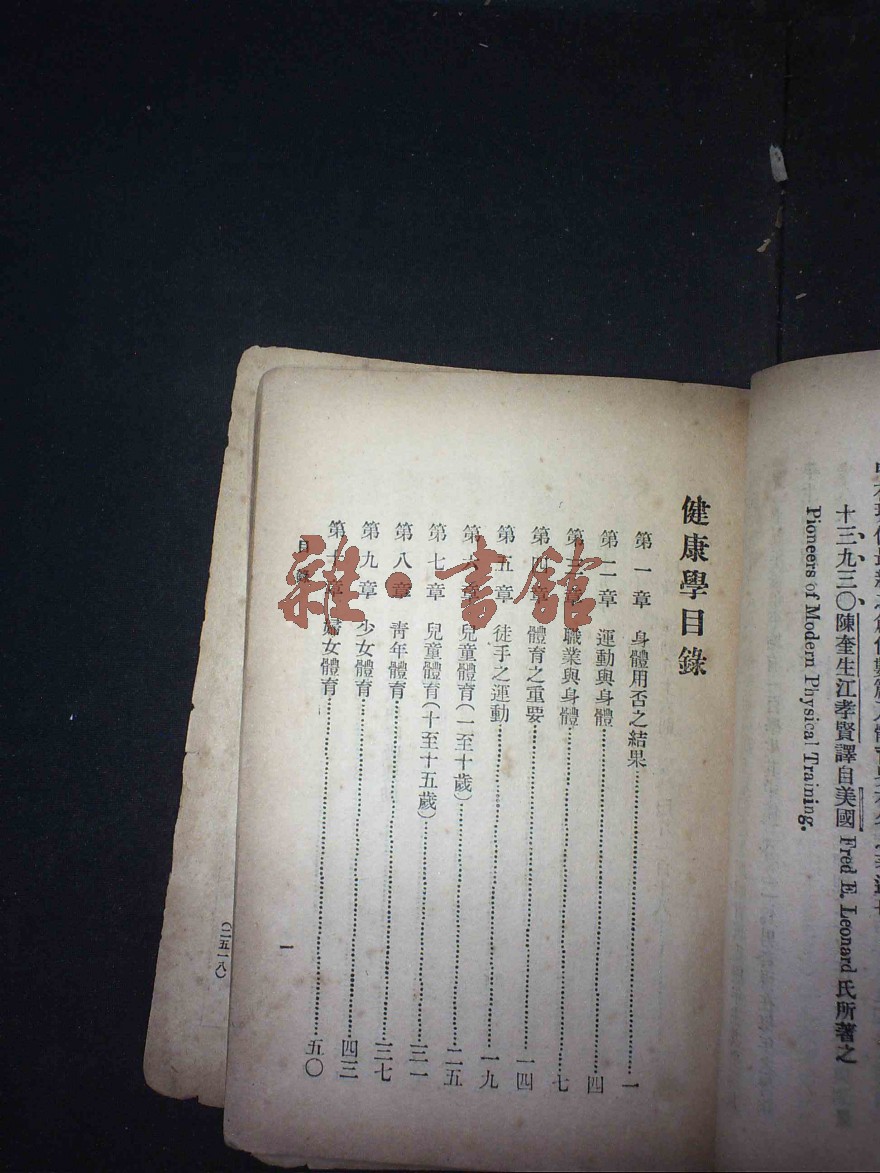 十三、九三〇、陳奎生江孝賢譯自美國 Fred E. Leonard 氏所著之
Pioneers of Modern Physical Training.
健康學目錄
第一章 身體用否之結果 一
第二章 運動與身體 四
第三章 職業與身體 七
第四章 體育之重要 一四
第五章 徒手之運動 一九
第六章 兒童體育(一至十歲) 二五
第七章 兒童體育(十至十五歲) 三一
第八章 青年體育 三七
第九章 少女體育 四三
第十章 婦女體育 五〇
目錄
一
(二五一八)
雜·書館